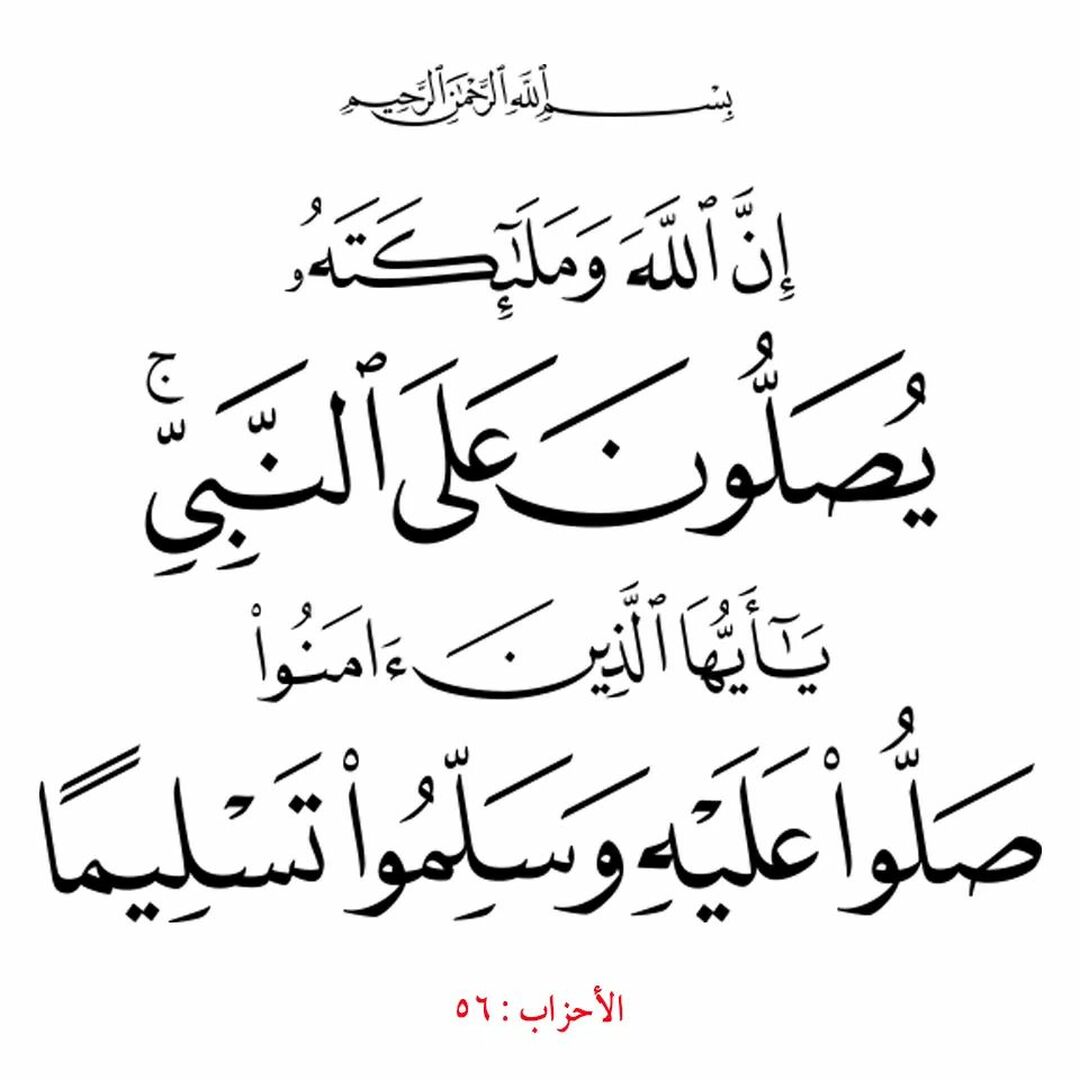 بِسْمِ ٱللَّهِ ٱلرَّحْمَٰنِ ٱلرَّحِيمِ
إِنَّ ٱللَّهَ وَمَلَٰٓئِكَتَهُۥ
يُصَلُّونَ عَلَى ٱلنَّبِىِّ ۚ
يَٰٓأَيُّهَا ٱلَّذِينَ ءَامَنُوا۟
صَلُّوا۟ عَلَيْهِ وَسَلِّمُوا۟ تَسْلِيمًا
الأحزاب : ٥٦